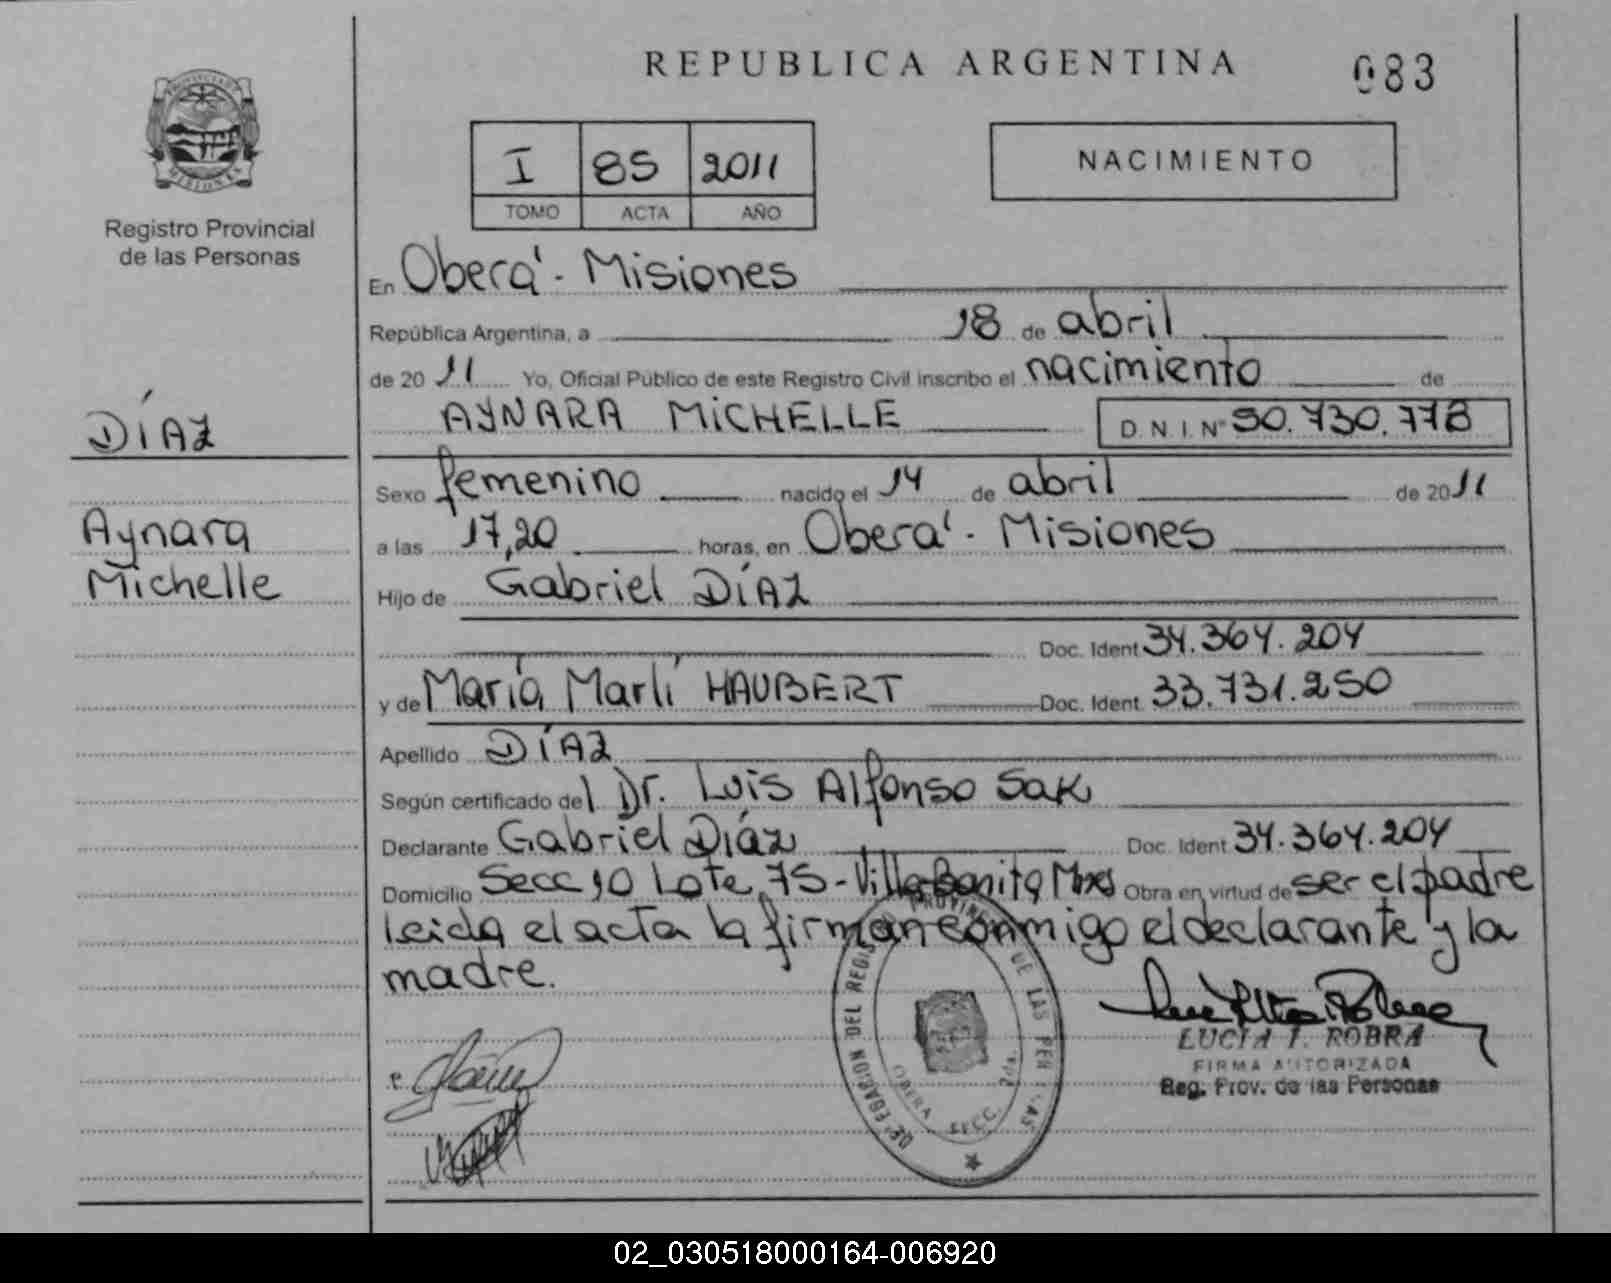 REPUBLICA ARGENTINA
083
PROVINCIA DE
MISIONES
Registro Provincial
de las Personas
I 85 2011
TOMO ACTA AÑO
NACIMIENTO
En Oberá - Misiones
República Argentina, a 18 de abril
de 2011 Yo, Oficial Público de este Registro Civil inscribo el nacimiento de
DÍAZ
AYNARA MiCHELLE D.N.I. Nº 50.730.778
Sexo femenino nacido el 14 de abril de 2011
Aynara
Michelle
a las 17,20 horas, en Oberá - Misiones
Hijo de Gabriel DÍAZ
Doc. Ident 34.364.204
y de María Marlí HAUBERT Doc. Ident. 33.731.250
Apellido DÍAZ
Según certificado del Dr. Luis Alfonso Sak
Declarante Gabriel Díaz Doc. Ident 34.364.204
Domicilio Secc 10 Lote 75 - Villa Bonita Mnes Obra en virtud de ser el padre
leida el acta la firman conmigo el declarante y la
madre.
DELEGACION DEL REGISTRO PROVINCIAL DE LAS PERSONAS
OBERA SECC. 2da.
LUCIA I. ROBRA
FIRMA AUTORIZADA
Reg. Prov. de las Personas
02_030518000164-006920